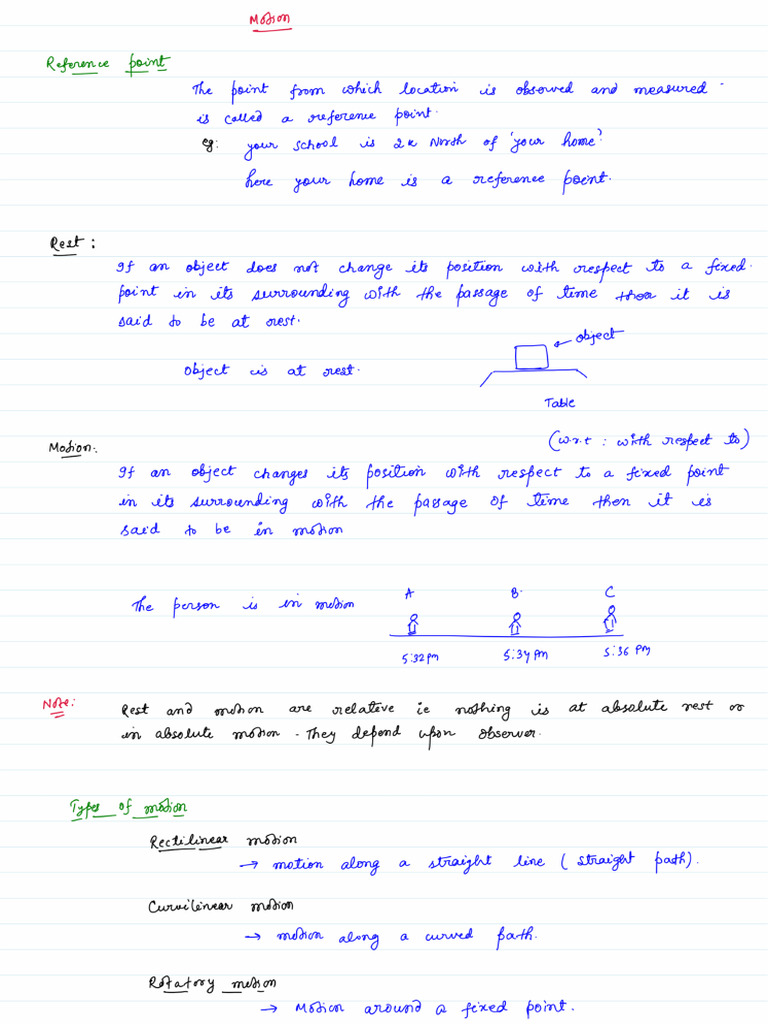 Motion
Reference point
The point from which location is observed and measured.
is called a reference point.
eg: your school is 2k North of 'your home'
here your home is a reference point.
Rest :
If an object does not change its position with respect to a fixed.
point in its surrounding with the passage of time then it is
said to be at rest.
object
Object is at rest.
Table
(w.r.t : with respect to)
Motion:
If an object changes its position with respect to a fixed point
in its surrounding with the passage of time then it is
said to be in motion
A B. C
The person is in motion
5:32 pm 5:34 pm 5:36 pm
Note: Rest and motion are relative ie nothing is at absolute rest or
in absolute motion. They depend upon observer.
Types of motion
Rectilinear motion
→ motion along a straight line (straight path).
Curvilinear motion
→ motion along a curved path.
Rotatory motion
→ Motion around a fixed point.